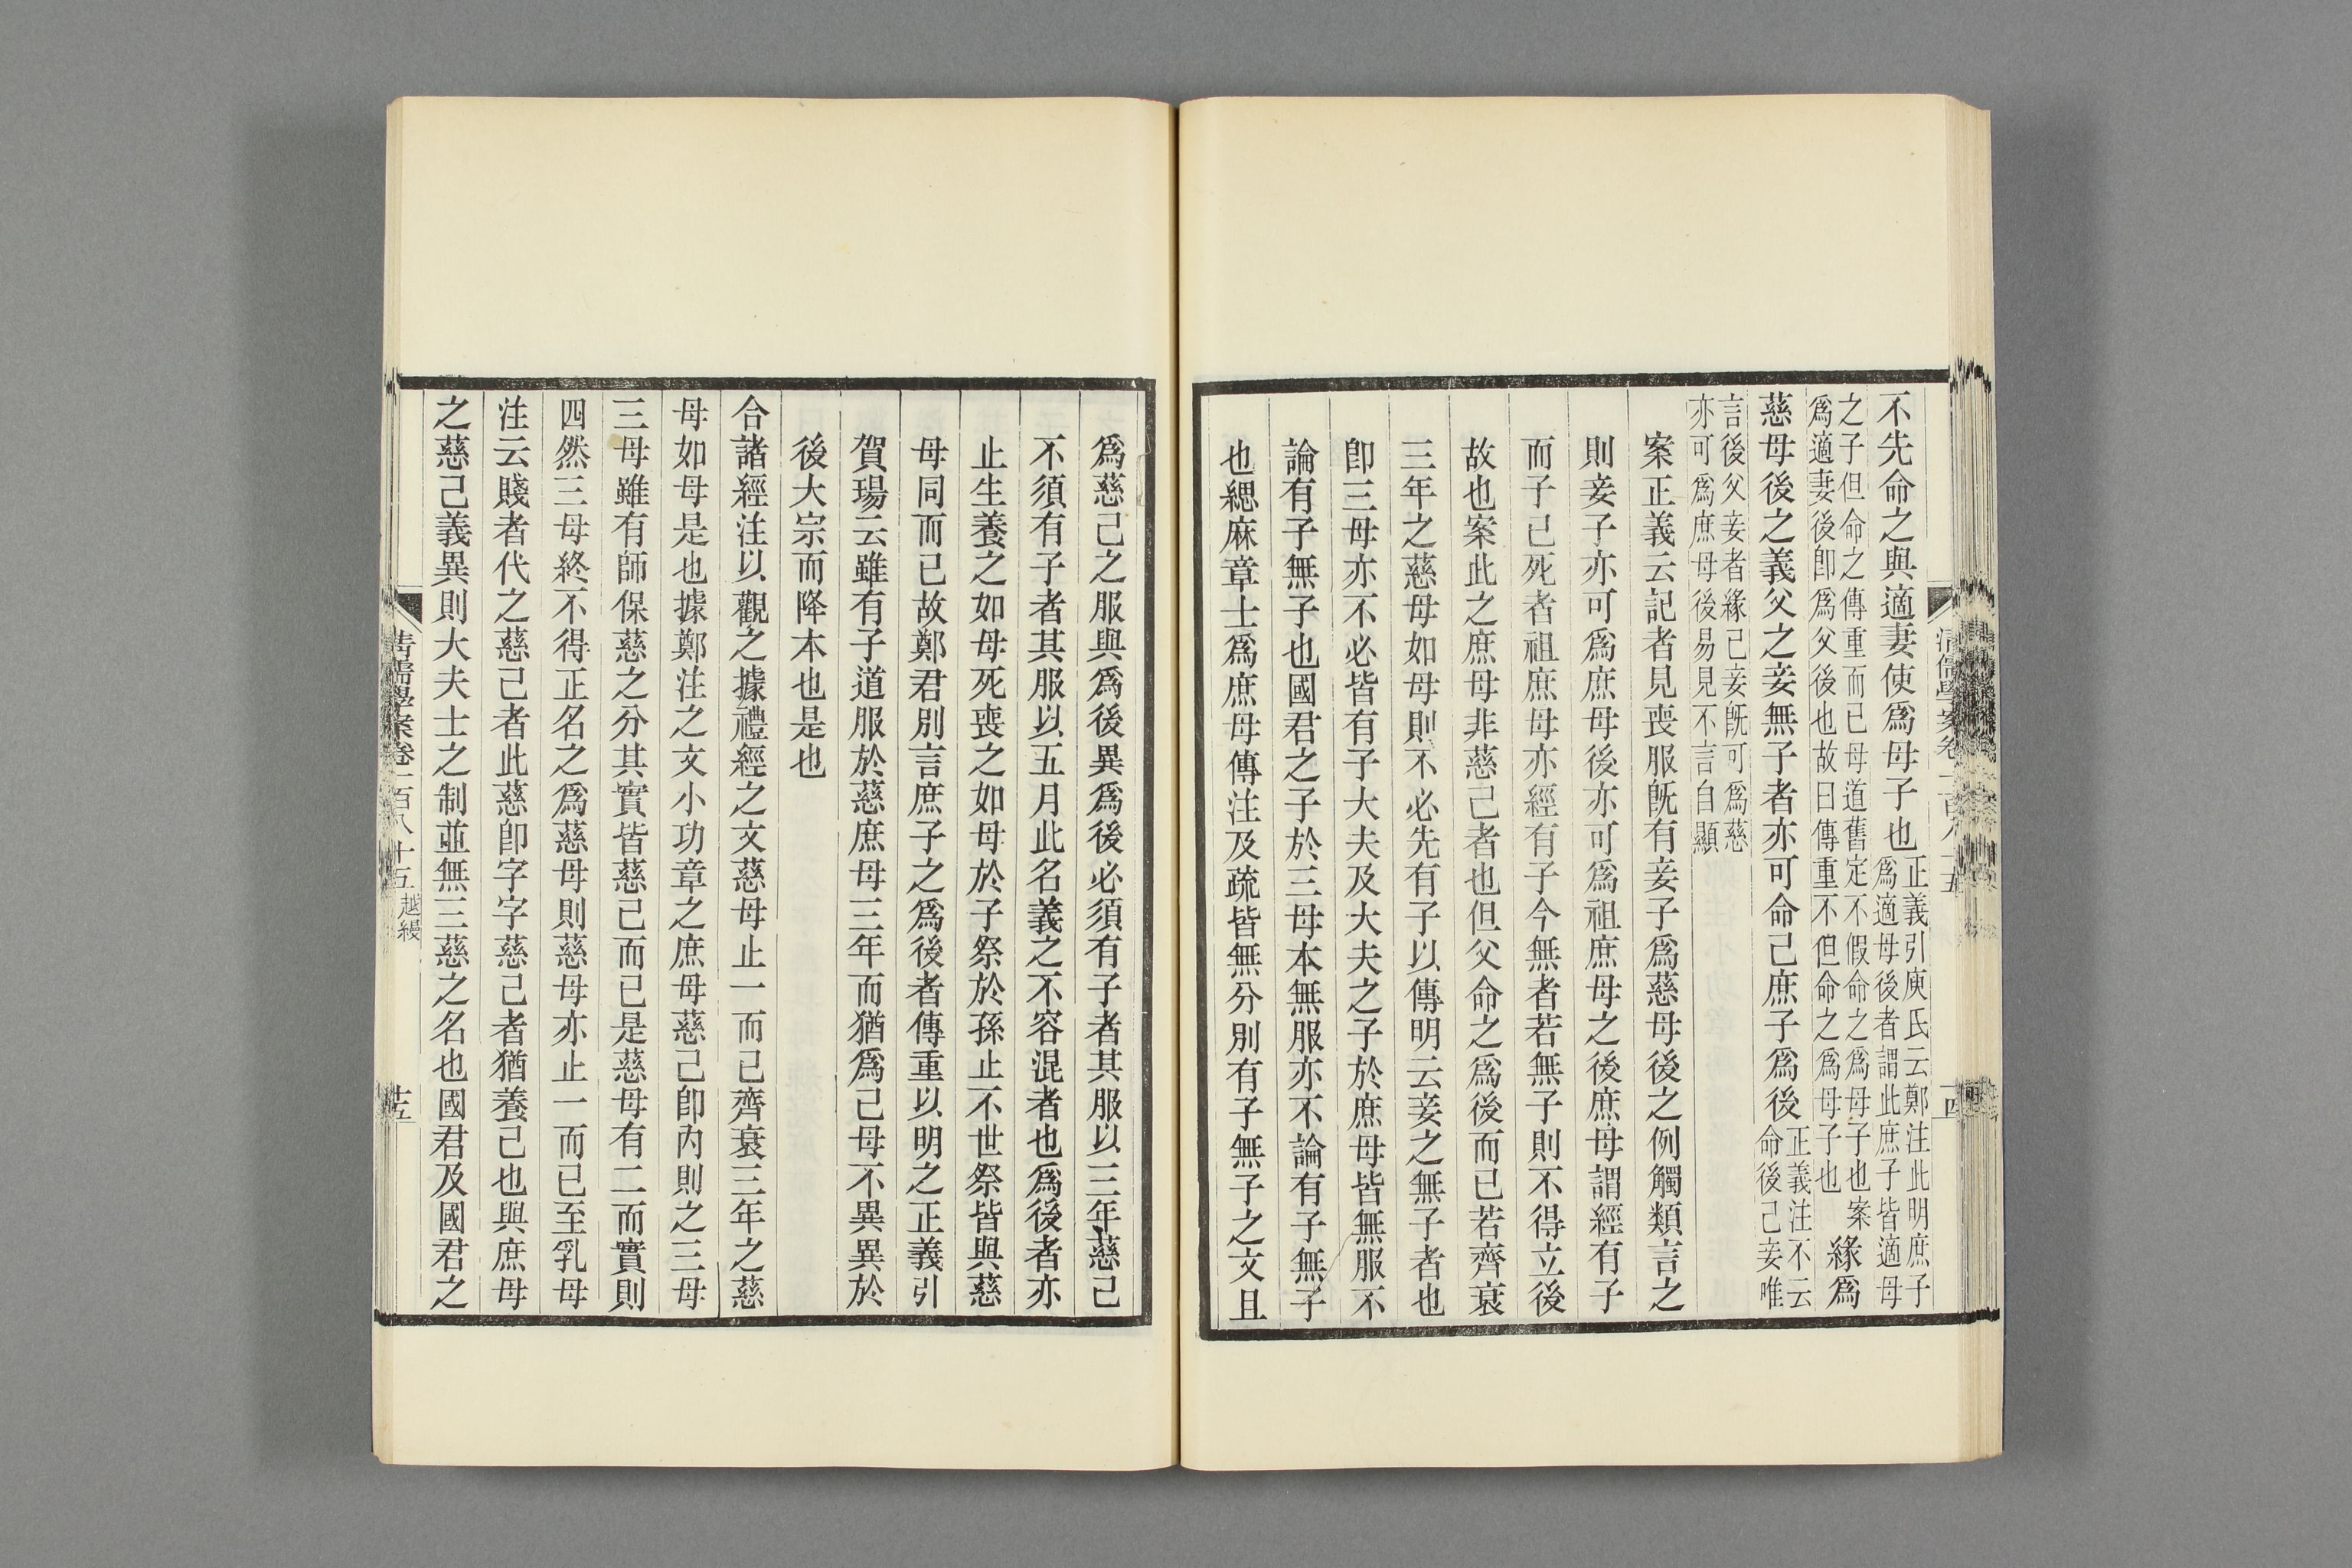 不先命之與適妻使爲母子也正義引庾氏云鄭注此明庶子爲適母後者謂此庶子皆適母
之子但命之傳重而已母道舊定不假命之爲母子也案爲適妻後卽爲父後也故曰傳重不但命之爲母子也緣爲
慈母後之義父之妾無子者亦可命己庶子爲後正義注不云命後己妾唯
言後父妾者緣己妾旣可爲慈亦可爲庶母後易見不言自顯
案正義云記者見喪服旣有妾子爲慈母後之例觸類言之
則妾子亦可爲庶母後亦可爲祖庶母之後庶母謂經有子
而子己死者祖庶母亦經有子今無者若無子則不得立後
故也案此之庶母非慈己者也但父命之爲後而已若齊衰
三年之慈母如母則不必先有子以傳明云妾之無子者也
卽三母亦不必皆有子大夫及大夫之子於庶母皆無服不
論有子無子也國君之子於三母本無服亦不論有子無子
也緦麻章士爲庶母傳注及疏皆無分別有子無子之文且
爲慈己之服與爲後異爲後必須有子者其服以三年慈己
不須有子者其服以五月此名義之不容混者也爲後者亦
止生養之如母死喪之如母於子祭於孫止不世祭皆與慈
母同而已故鄭君別言庶子之爲後者傳重以明之正義引
賀瑒云雖有子道服於慈庶母三年而猶爲己母不異異於
後大宗而降本也是也
合諸經注以觀之據禮經之文慈母止一而已齊衰三年之慈
母如母是也據鄭注之文小功章之庶母慈己卽內則之三母
三母雖有師保慈之分其實皆慈己而已是慈母有二而實則
四然三母終不得正名之爲慈母則慈母亦止一而已至乳母
注云賤者代之慈己者此慈卽字字慈己者猶養己也與庶母
之慈己義異則大夫士之制並無三慈之名也國君及國君之
清儒學案卷一百八十五 越縵